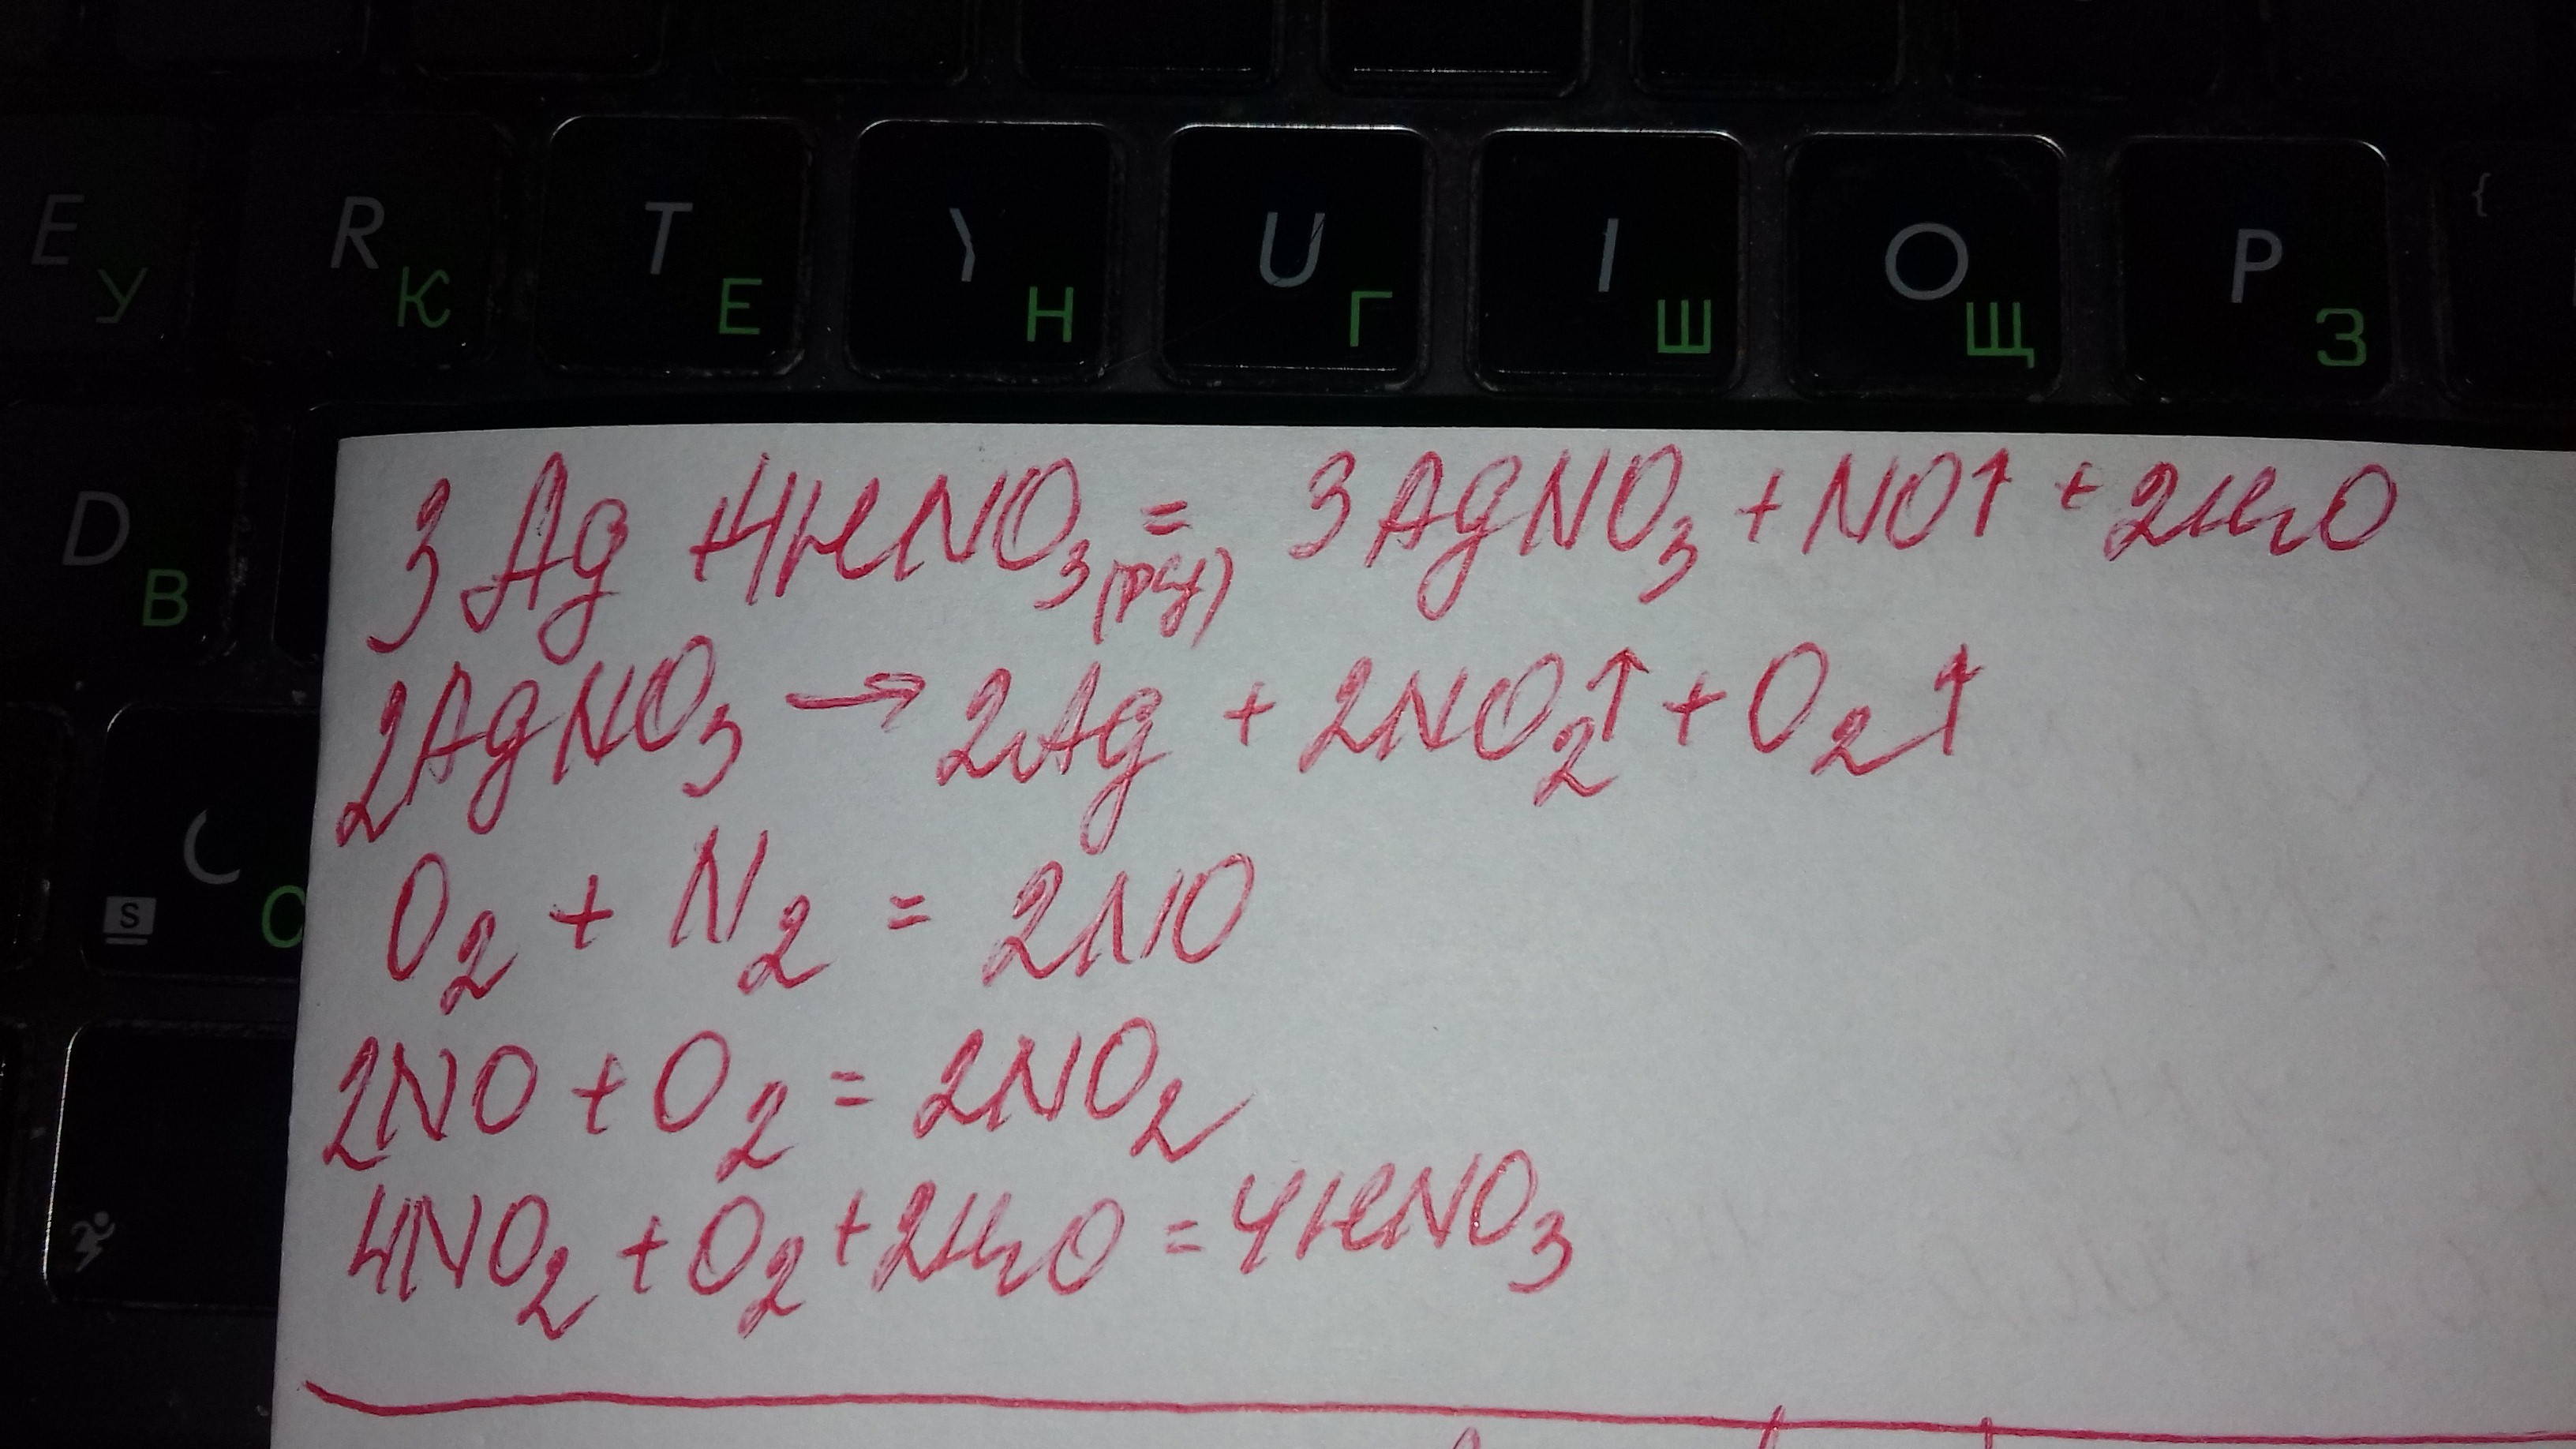 E У R К T Е Y Н U Г I Ш O Щ P З {
D В
C С
S
3Ag + 4HNO₃(рзб) = 3AgNO₃ + NO↑ + 2H₂O
2AgNO₃ → 2Ag + 2NO₂↑ + O₂↑
O₂ + N₂ = 2NO
2NO + O₂ = 2NO₂
4NO₂ + O₂ + 2H₂O = 4HNO₃